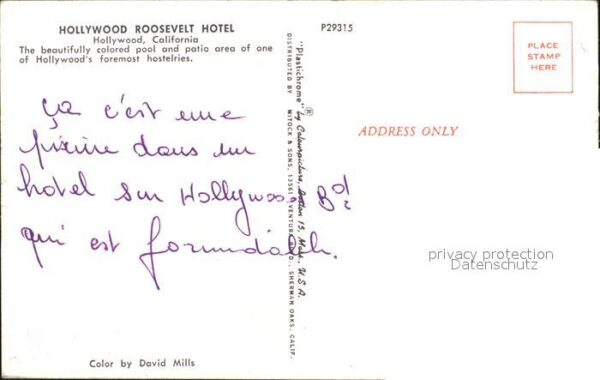 HOLLYWOOD ROOSEVELT HOTEL
Hollywood, California
The beautifully colored pool and patio area of one
of Hollywood's foremost hostelries.
ça c'est une
piscine dans un
hotel sur Hollywood Bd
qui est formidable.
Color by David Mills
P29315
"Plastichrome"® by Colourpicture, Boston 15, Mass., U.S.A.
DISTRIBUTED BY MITOCK & SONS, 13561 VENTURA BLVD., SHERMAN OAKS, CALIF.
PLACE
STAMP
HERE
ADDRESS ONLY
privacy protection
Datenschutz